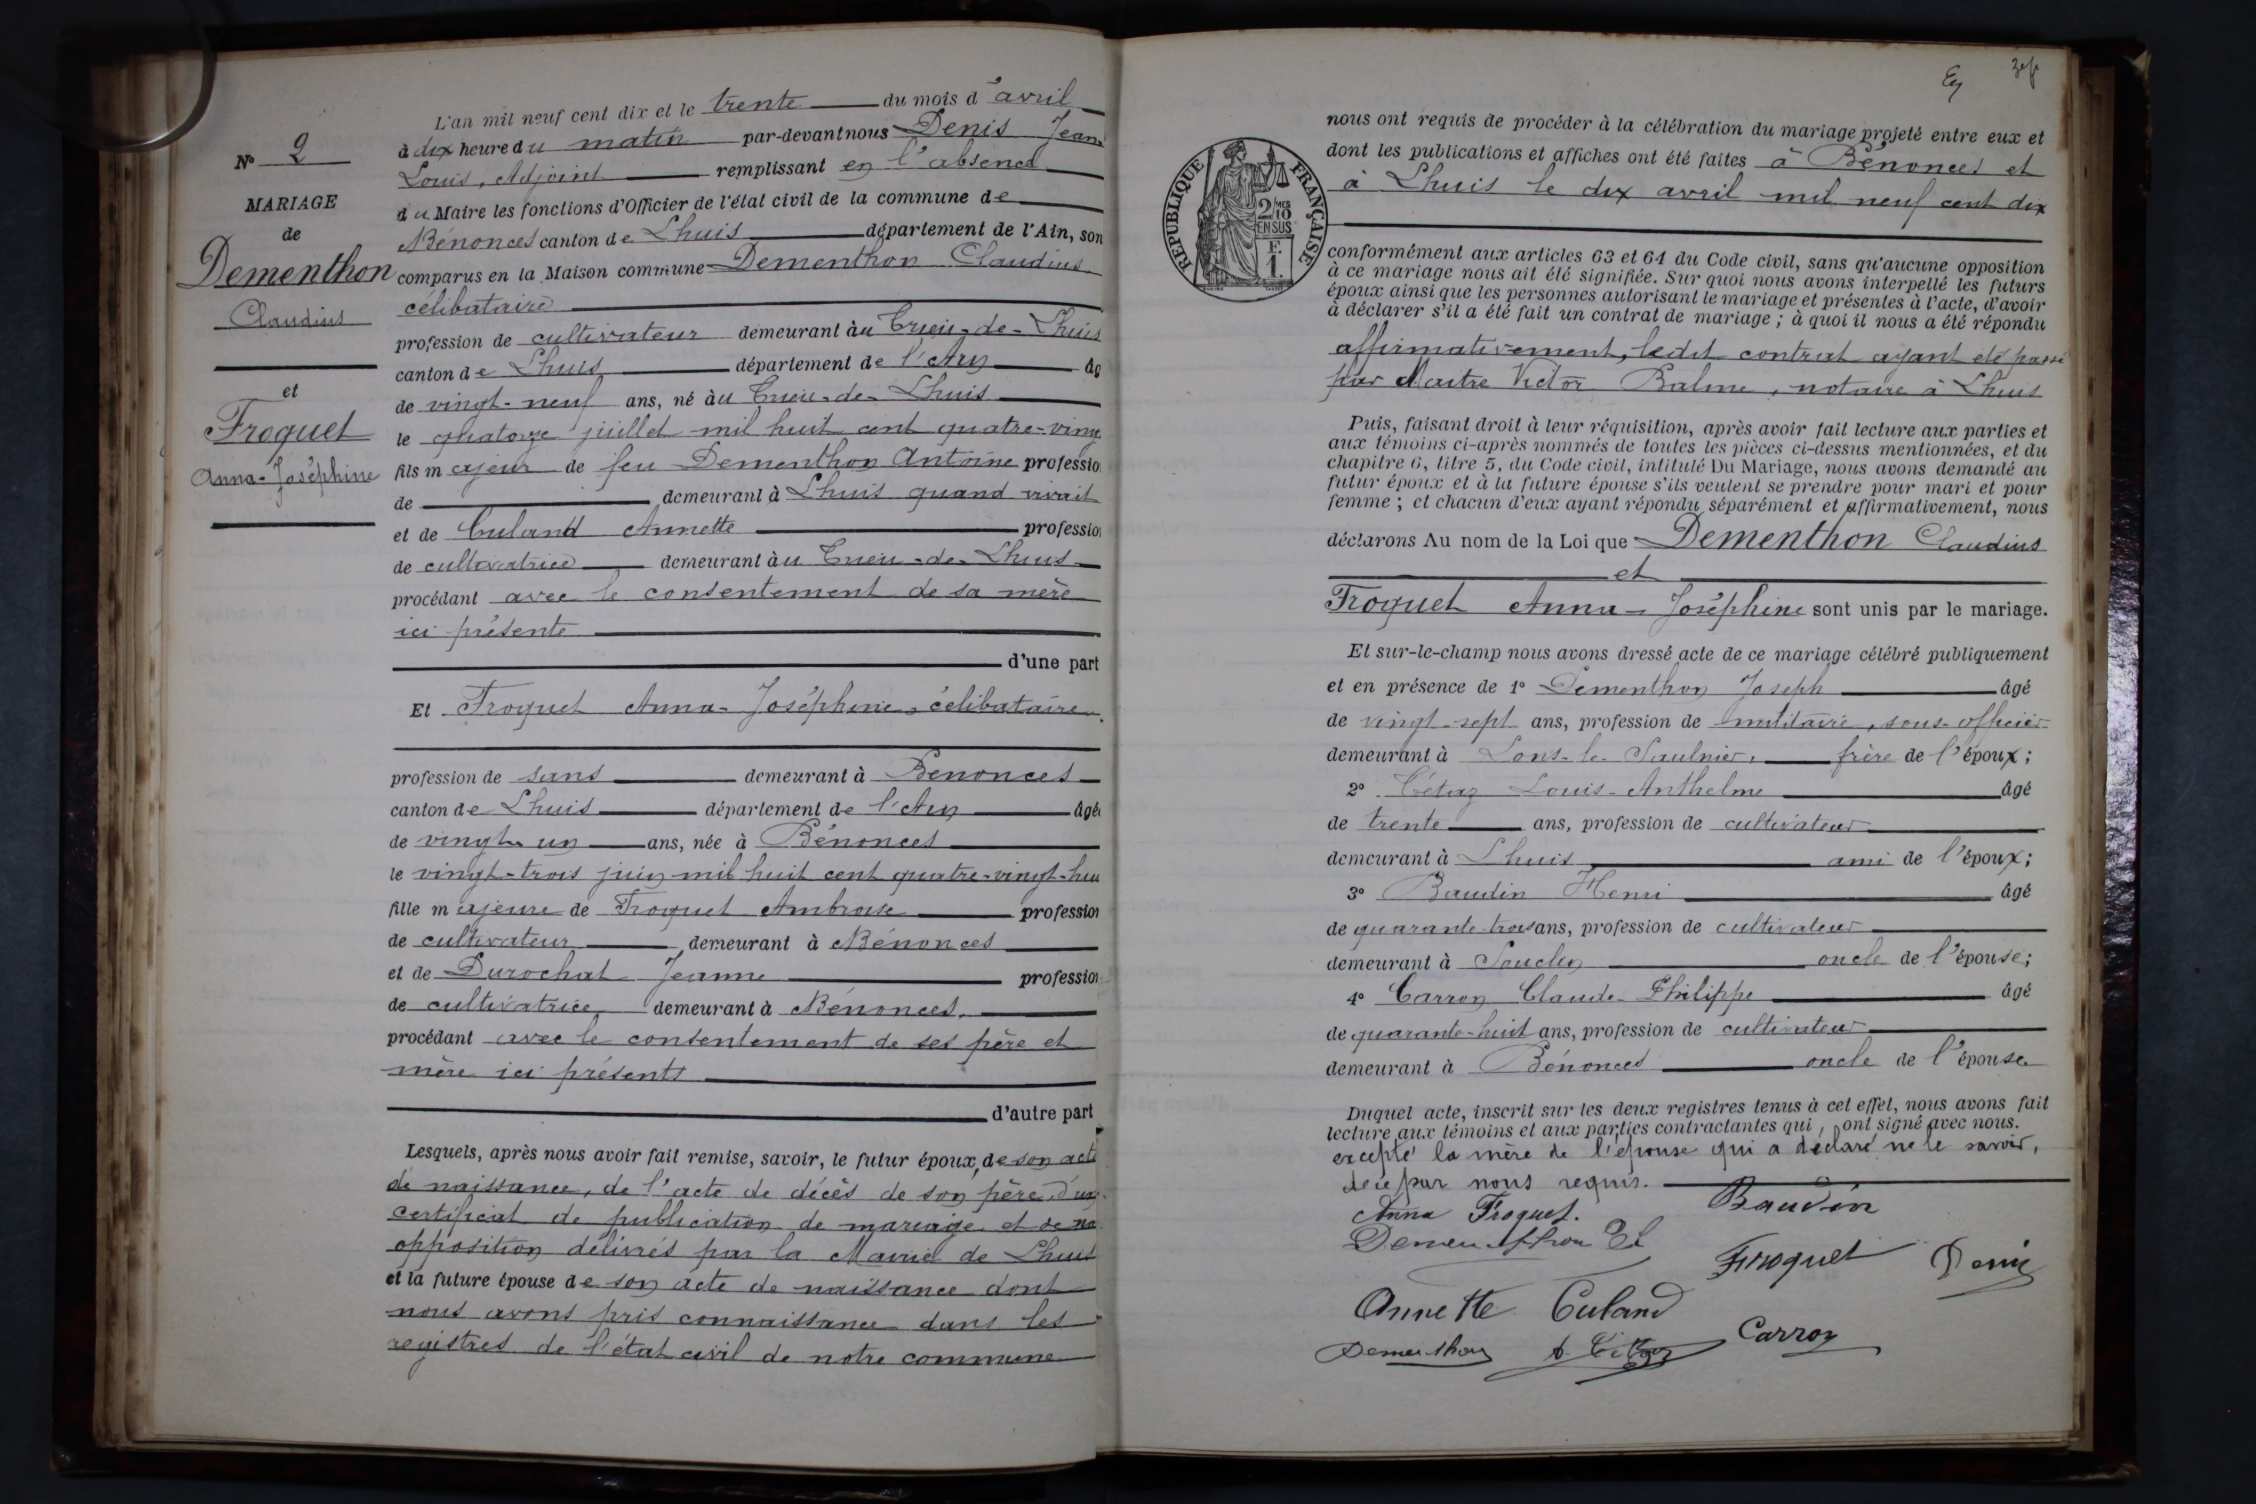 N° 2
MARIAGE
de
Dementhon
Claudius
et
Froquet
Anna-Joséphine
L'an mil neuf cent dix et le trente du mois d'avril
à dix heure du matin par-devant nous Denis Jean
Louis, Adjoint remplissant en l'absence
du Maire les fonctions d'Officier de l'état civil de la commune de
Bénonces canton de Lhuis département de l'Ain, son
comparus en la Maison commune Dementhon Claudius
célibataire
profession de cultivateur demeurant àu Crieu-de-Lhuis
canton de Lhuis département de l'Ain âg
de vingt-neuf ans, né àu Crieu-de-Lhuis
le quatorze juillet mil huit cent quatre-ving
fils majeur de feu Dementhon Antoine professio
de demeurant à Lhuis quand vivait
et de Culand Annette profession
de cultivatrice demeurant àu Crieu-de-Lhuis
procédant avec le consentement de sa mère
ici présente
d'une part
Et Froquet Anna-Joséphine, célibataire
profession de sans demeurant à Bénonces
canton de Lhuis département de l'Ain âgé
de vingt un ans, née à Bénonces
le vingt-trois juin mil huit cent quatre-vingt-hu
fille majeure de Froquet Ambroise profession
de cultivateur demeurant à Bénonces
et de Durochat Jeanne profession
de cultivatrice demeurant à Bénonces,
procédant avec le consentement de ses père et
mère ici présents
d'autre part
Lesquels, après nous avoir fait remise, savoir, le futur époux, de son acte
de naissance, de l'acte de décès de son père, d'un
certificat de publication de mariage et de no
opposition délivrés par la Mairie de Lhuis
et la future épouse de son acte de naissance dont
nous avons pris connaissance dans les
registres de l'état civil de notre commune
nous ont requis de procéder à la célébration du mariage projeté entre eux et
dont les publications et affiches ont été faites à Bénonces et
à Lhuis le dix avril mil neuf cent dix
RÉPUBLIQUE FRANÇAISE
2/10 MES
EN SUS
F.
1.
conformément aux articles 63 et 64 du Code civil, sans qu'aucune opposition
à ce mariage nous ait été signifiée. Sur quoi nous avons interpellé les futurs
époux ainsi que les personnes autorisant le mariage et présentes à l'acte, d'avoir
à déclarer s'il a été fait un contrat de mariage ; à quoi il nous a été répondu
affirmativement, ledit contrat ayant été passé
par Maître Victor Balme, notaire à Lhuis
Puis, faisant droit à leur réquisition, après avoir fait lecture aux parties et
aux témoins ci-après nommés de toutes les pièces ci-dessus mentionnées, et du
chapitre 6, titre 5, du Code civil, intitulé Du Mariage, nous avons demandé au
futur époux et à la future épouse s'ils veulent se prendre pour mari et pour
femme ; et chacun d'eux ayant répondu séparément et affirmativement, nous
déclarons Au nom de la Loi que Dementhon Claudius
et
Froquet Anna-Joséphine sont unis par le mariage.
Et sur-le-champ nous avons dressé acte de ce mariage célébré publiquement
et en présence de 1° Dementhon Joseph âgé
de vingt-sept ans, profession de militaire, sous-officier
demeurant à Lons-le-Saulnier, frère de l'époux ;
2° Tétaz Louis-Anthelme âgé
de trente ans, profession de cultivateur
demeurant à Lhuis, ami de l'époux ;
3° Baudin Henri âgé
de quarante-trois ans, profession de cultivateur
demeurant à Souclin oncle de l'épouse ;
4° Carron Claude-Philippe âgé
de quarante-huit ans, profession de cultivateur
demeurant à Bénonces oncle de l'épouse
Duquel acte, inscrit sur les deux registres tenus à cet effet, nous avons fait
lecture aux témoins et aux parties contractantes qui, ont signé avec nous.
excepté la mère de l'épouse qui a déclaré ne le savoir,
de ce par nous requis.
Anna Froquet. Baudin
Dementhon Froquet Denis
Annette Culand
Dementhon Carron